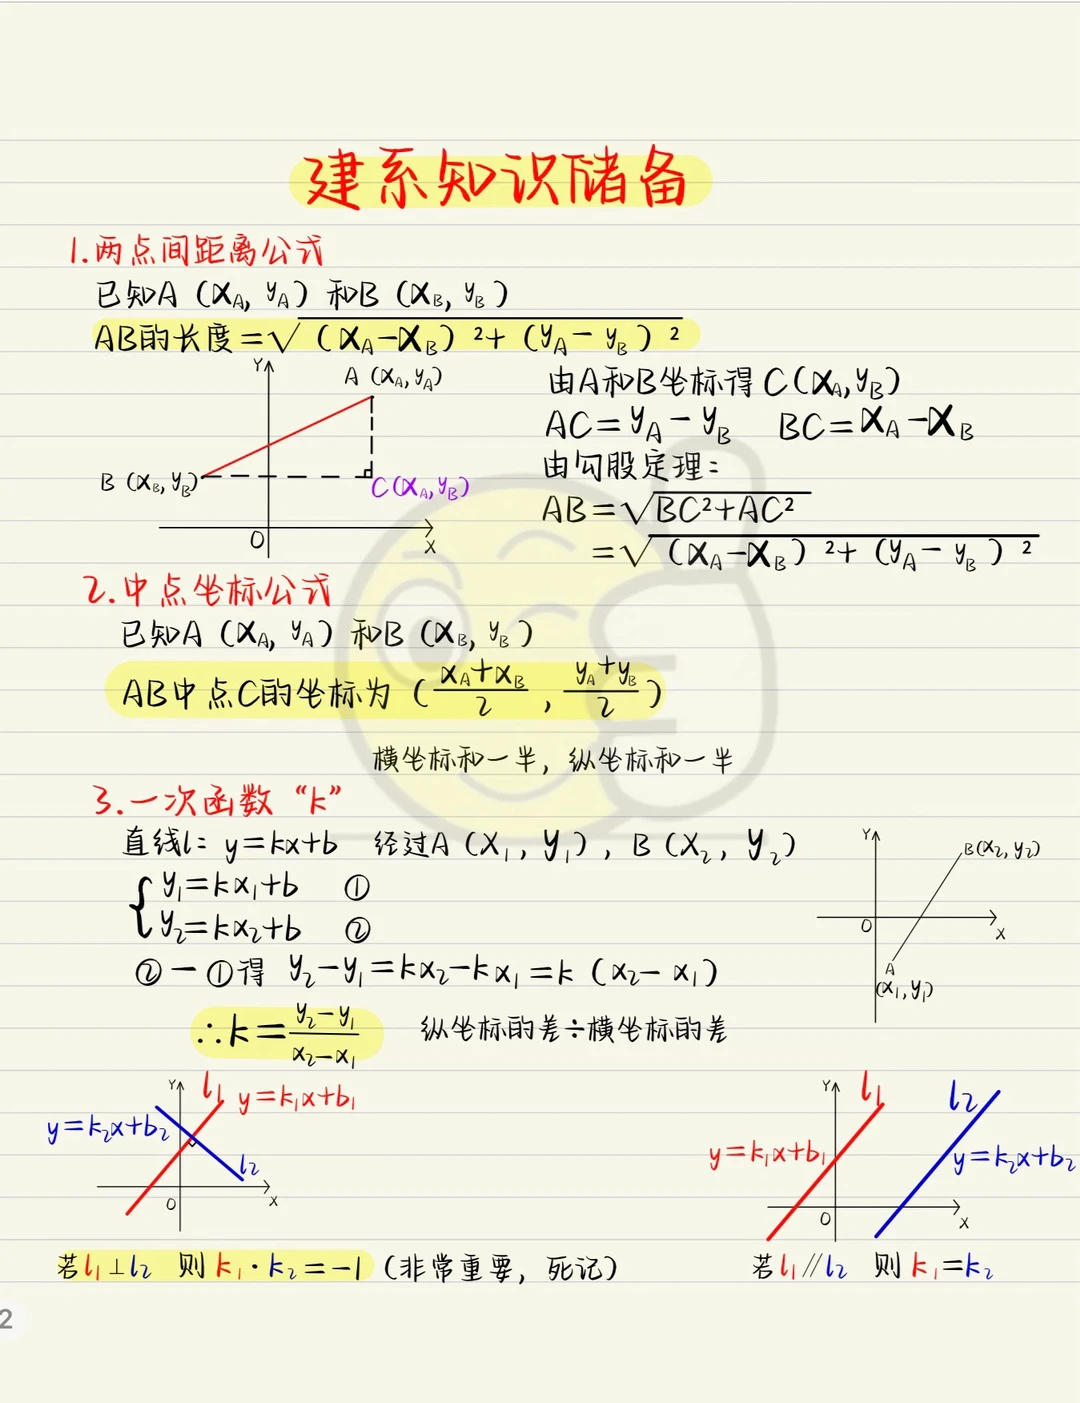 建系知识储备
1.两点间距离公式
已知A（X_A, y_A）和B（X_B, y_B）
AB的长度=√(X_A-X_B)²+(y_A-y_B)²
Y
A（X_A, y_A）
B（X_B, y_B）
C（X_A, y_B）
O
X
由A和B坐标得C(X_A, y_B)
AC=y_A-y_B BC=X_A-X_B
由勾股定理：
AB=√BC²+AC²
=√(X_A-X_B)²+(y_A-y_B)²
2.中点坐标公式
已知A（X_A, y_A）和B（X_B, y_B）
AB中点C的坐标为（(x_A+x_B)/2, (y_A+y_B)/2）
横坐标和一半，纵坐标和一半
3.一次函数“k”
直线l: y=kx+b 经过A（X₁, y₁），B（X₂, y₂）
y₁=kx₁+b ①
y₂=kx₂+b ②
②-①得 y₂-y₁=kx₂-kx₁=k（x₂-x₁）
∴k=(y₂-y₁)/(x₂-x₁) 纵坐标的差÷横坐标的差
Y
B(X₂, y₂)
O
X
A
(X₁, y₁)
Y
l₁
y=k₁x+b₁
y=k₂x+b₂
l₂
O
X
若l₁⊥l₂ 则k₁·k₂=-1（非常重要，死记）
Y
l₁
l₂
y=k₁x+b₁
y=k₂x+b₂
O
X
若l₁∥l₂ 则k₁=k₂
2